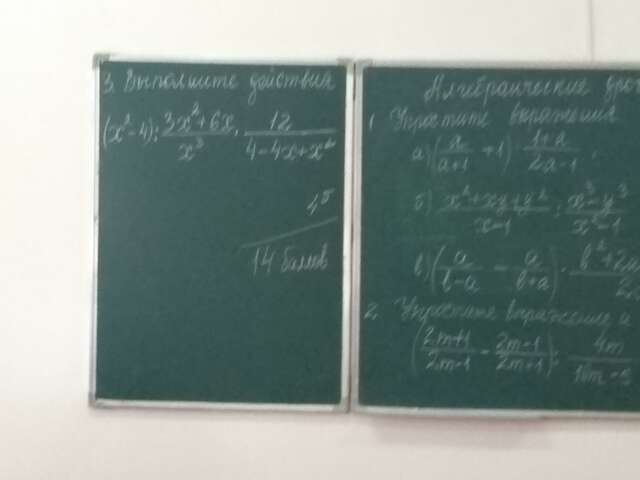 3. Выполните действия
(x²-4) : (3x²+6x)/x³ · 12/(4-4x+x²)
4б
14 баллов
Алгебраические
1 Упростите выражения
а) (a/(a+1) + 1) · (1+a)/(2a-1) ;
б) (x²+xy+y²)/(x-1) : (x³-y³)/(x²-1)
в) (a/(b-a) - a/(b+a)) · b²+2a
2. Упростите выражение и
((2m+1)/(2m-1) - (2m-1)/(2m+1)) : 4m/(10m-5